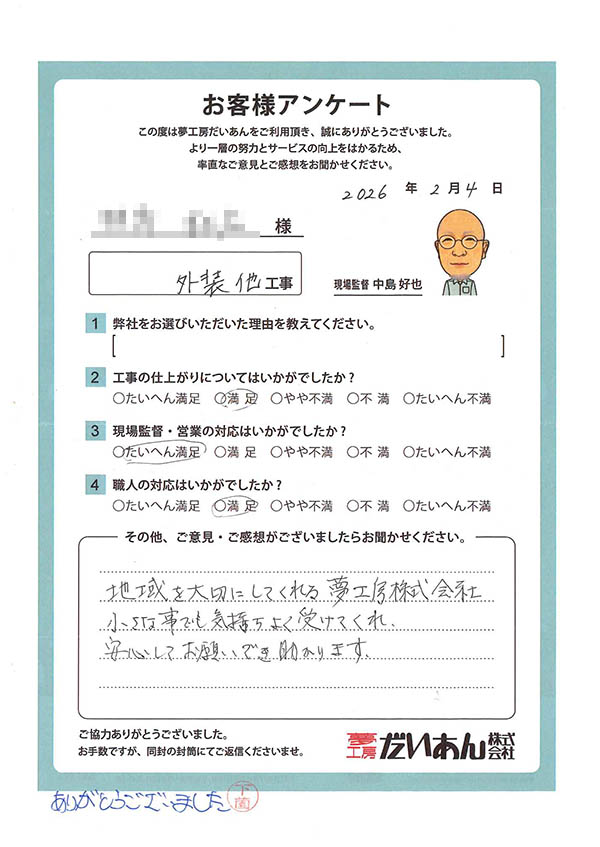 お客様アンケート
この度は夢工房だいあんをご利用頂き、誠にありがとうございました。
より一層の努力とサービスの向上をはかるため、
率直なご意見とご感想をお聞かせください。
2026 年 2 月 4 日
様
外装他工事
現場監督 中島 好也
1 弊社をお選びいただいた理由を教えてください。
2 工事の仕上がりについてはいかがでしたか?
○たいへん満足 ○満 足 ○やや不満 ○不 満 ○たいへん不満
3 現場監督・営業の対応はいかがでしたか?
○たいへん満足 ○満 足 ○やや不満 ○不 満 ○たいへん不満
4 職人の対応はいかがでしたか?
○たいへん満足 ○満 足 ○やや不満 ○不 満 ○たいへん不満
その他、ご意見・ご感想がございましたらお聞かせください。
地域を大切にしてくれる夢工房株式会社
小さな事でも気持ちよく受けてくれ、
安心してお願いでき助かります。
ご協力ありがとうございました。
お手数ですが、同封の封筒にてご返信くださいませ。
夢工房 だいあん 株式会社
ありがとうございました 下薗